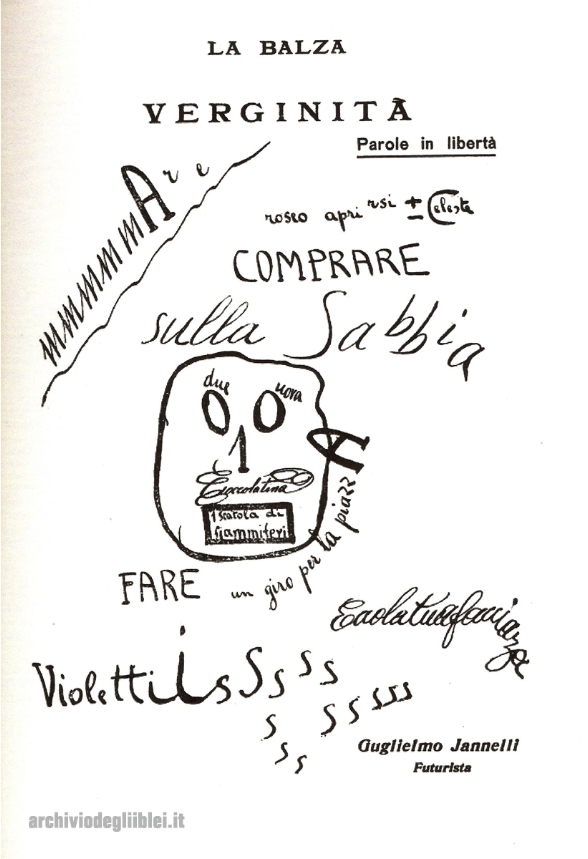 LA BALZA
VERGINITÀ
Parole in libertà
mmmmmmAre
roseo aprirsi ± Celeste
COMPRARE
sulla Sabbia
due uova
1 Cioccolatina
1 scatola di
fiammiferi
FARE un giro per la piazzA
E aolatuafacciazza
ViolettiiisSsssssssssss
Guglielmo Jannelli
Futurista
archiviodegliiblei.it